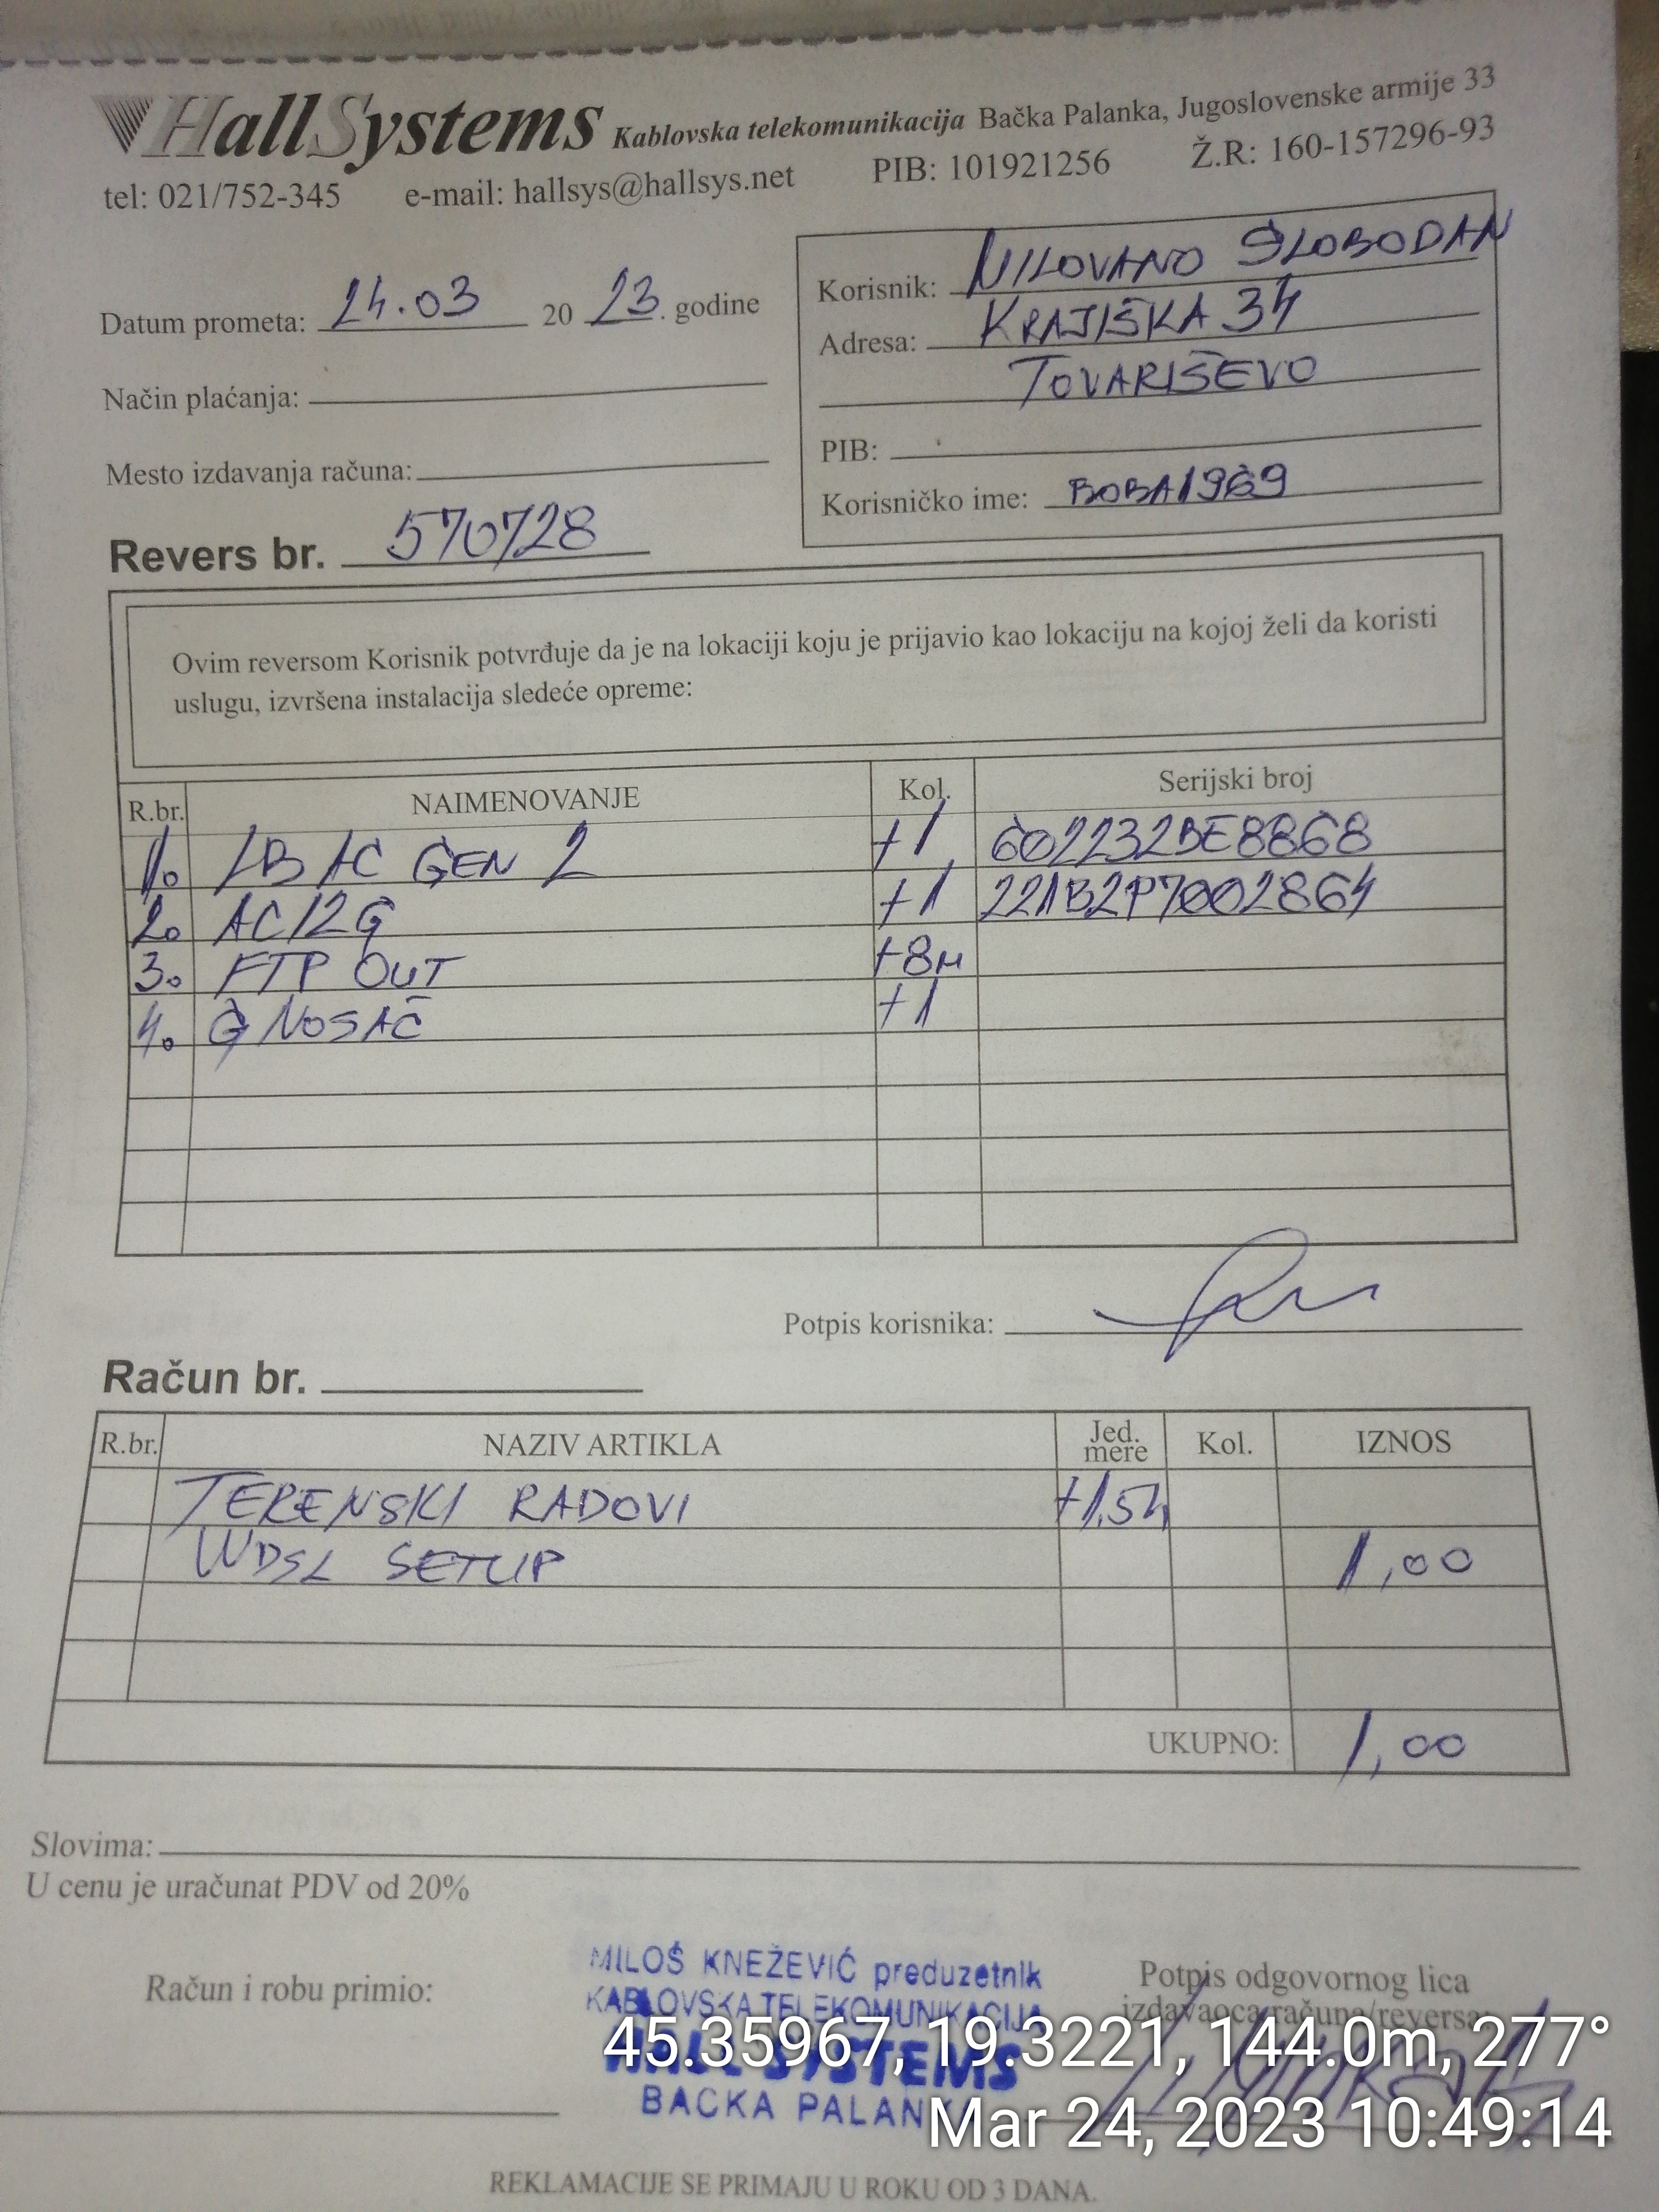 HallSystems Kablovska telekomunikacija Bačka Palanka, Jugoslovenske armije 33
tel: 021/752-345 e-mail: hallsys@hallsys.net PIB: 101921256 Ž.R: 160-157296-93
Datum prometa: 24.03 20 23. godine
Način plaćanja:
Mesto izdavanja računa:
Revers br. 570728
Korisnik: SLOBODAN
Adresa: KRAJIŠKA 34
TOVARIŠEVO
PIB:
Korisničko ime: BOBA1969
Ovim reversom Korisnik potvrđuje da je na lokaciji koju je prijavio kao lokaciju na kojoj želi da koristi
uslugu, izvršena instalacija sledeće opreme:
R.br. NAIMENOVANJE Kol. Serijski broj
1. LB AC GEN 2 +1 602232BE8868
2. AC12G +1 221B2P7002864
3. FTP OUT +8M
4. G NOSAČ +1
Potpis korisnika:
Račun br.
R.br. NAZIV ARTIKLA Jed. mere Kol. IZNOS
TERENSKI RADOVI +1,5h
WDSL SETUP 1,00
UKUPNO: 1,00
Slovima:
U cenu je uračunat PDV od 20%
Račun i robu primio:
MILOŠ KNEŽEVIĆ preduzetnik
KABLOVSKA TELEKOMUNIKACIJA
HALL SYSTEMS
BAČKA PALANKA
Potpis odgovornog lica
izdavaoca računa/reversa:
45.35967, 19.3221, 144.0m, 277°
Mar 24, 2023 10:49:14
REKLAMACIJE SE PRIMAJU U ROKU OD 3 DANA.